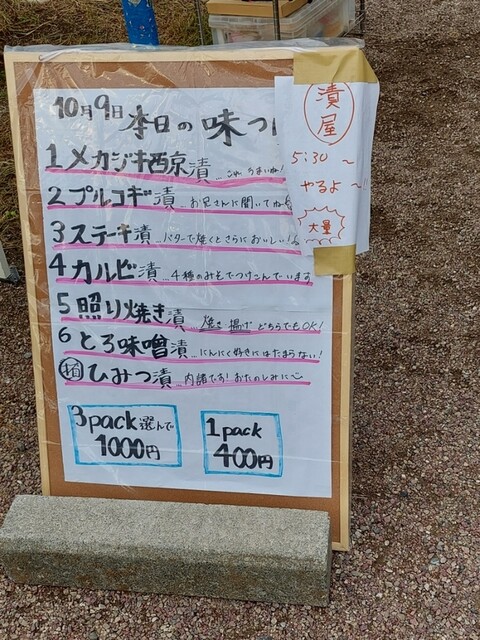 10月9日
本日の味つけ
1メカジキ西京漬…これ うまいね!
2プルコギ漬…お兄さんに聞いてね
3ステーキ漬…バターで焼くとさらにおいしい!
4カルビ漬…4種のみそでつけこんでいます
5照り焼き漬…焼き 揚げ どちらでもOK!
6とろ味噌漬…にんにく好きにはたまらない!
ひみつ漬…内緒です!おたのしみに
3pack選んで
1000円
1pack
400円
漬屋
5:30〜
やるよ〜!!
大量